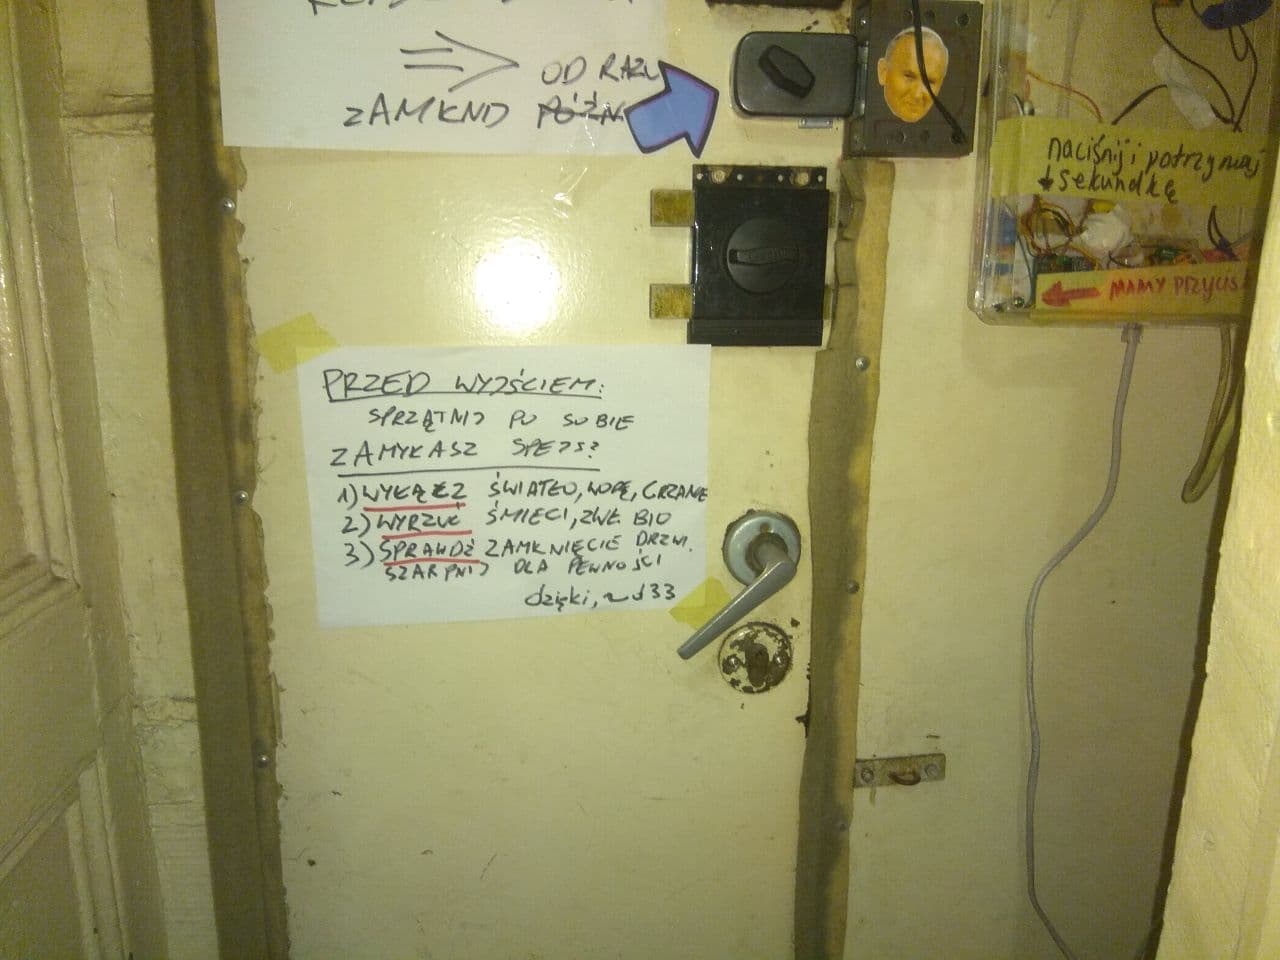 ⇒ OD RAZU
ZAMKNIJ PÓŹN
naciśnij i potrzymaj
↓ sekundkę
← MAMY PRZYCIS
PRZED WYJŚCIEM:
SPRZĄTNIJ PO SOBIE
ZAMYKASZ SPEJS?
1) WYŁĄCZ ŚWIATŁO, WODĘ, GRZANIE
2) WYRZUĆ ŚMIECI, ZWŁ. BIO
3) SPRAWDŹ ZAMKNIĘCIE DRZWI.
SZARPNIJ DLA PEWNOŚCI
dzięki, ~d33